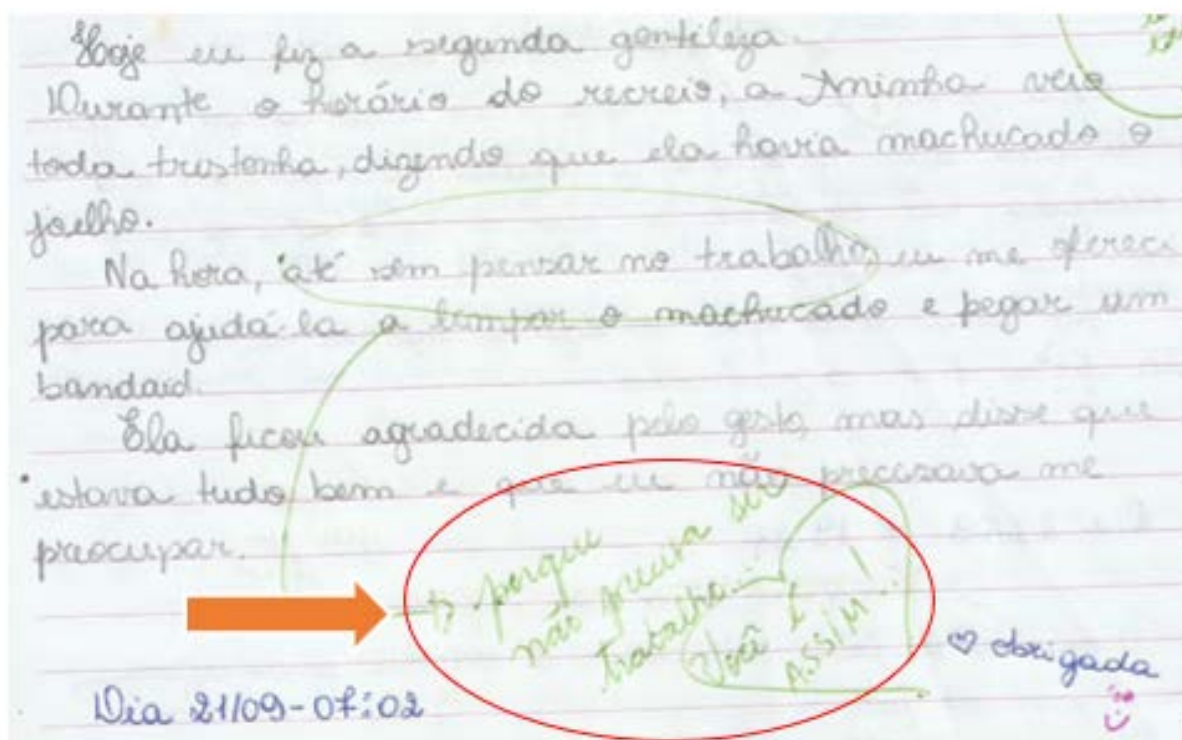 Hoje eu fiz a segunda gentileza.
Durante o horário do recreio, a Aninha veio
toda tristonha, dizendo que ela havia machucado o
joelho.
Na hora, até sem pensar no trabalho, eu me ofereci
para ajudá-la a limpar o machucado e pegar um
bandaid.
Ela ficou agradecida pelo gesto, mas disse que
estava tudo bem e que eu não precisava me
preocupar.
porque
não precisa ser
trabalho...
Você é
ASSIM!
obrigada
Dia 21/09 - 07:02